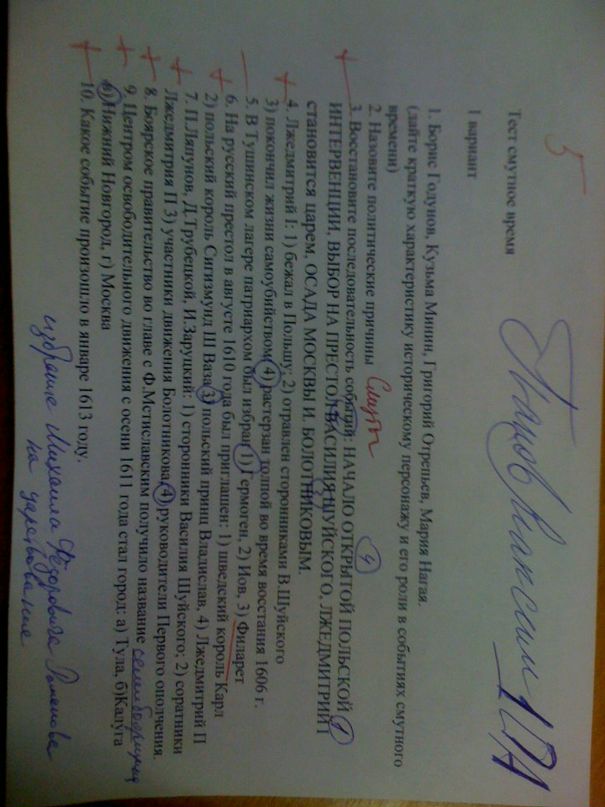 5
Тест смутное время
1 вариант
1. Борис Годунов, Кузьма Минин, Григорий Отрепьев, Мария Нагая.
(дайте краткую характеристику историческому персонажу и его роли в событиях смутного
времени)
2. Назовите политические причины Смуты
3. Восстановите последовательность событий: НАЧАЛО ОТКРЫТОЙ ПОЛЬСКОЙ
ИНТЕРВЕНЦИИ, ВЫБОР НА ПРЕСТОЛ ВАСИЛИЯ ШУЙСКОГО, ЛЖЕДМИТРИЙ I
становится царем, ОСАДА МОСКВЫ И. БОЛОТНИКОВЫМ.
4. Лжедмитрий I: 1) бежал в Польшу; 2) отравлен сторонниками В.Шуйского
3) покончил жизни самоубийством 4) растерзан толпой во время восстания 1606 г.
5. В Тушинском лагере патриархом был избран 1) Гермоген, 2) Иов, 3) Филарет
6. На русский престол в августе 1610 года был приглашен: 1) шведский король Карл
2) польский король Сигизмунд III Ваза 3) польский принц Владислав, 4) Лжедмитрий II
7. П.Ляпунов, Д.Трубецкой, И.Заруцкий: 1) сторонники Василия Шуйского; 2) соратники
Лжедмитрия II 3) участники движения Болотникова 4) руководители Первого ополчения
8. Боярское правительство во главе с Ф.Мстиславским получило название семибоярщина
9. Центром освободительного движения с осени 1611 года стал город: а) Тула, б)Калуга
в) Нижний Новгород, г) Москва
10. Какое событие произошло в январе 1613 году.
избрание Михаила Фёдоровича Романова
на царствование